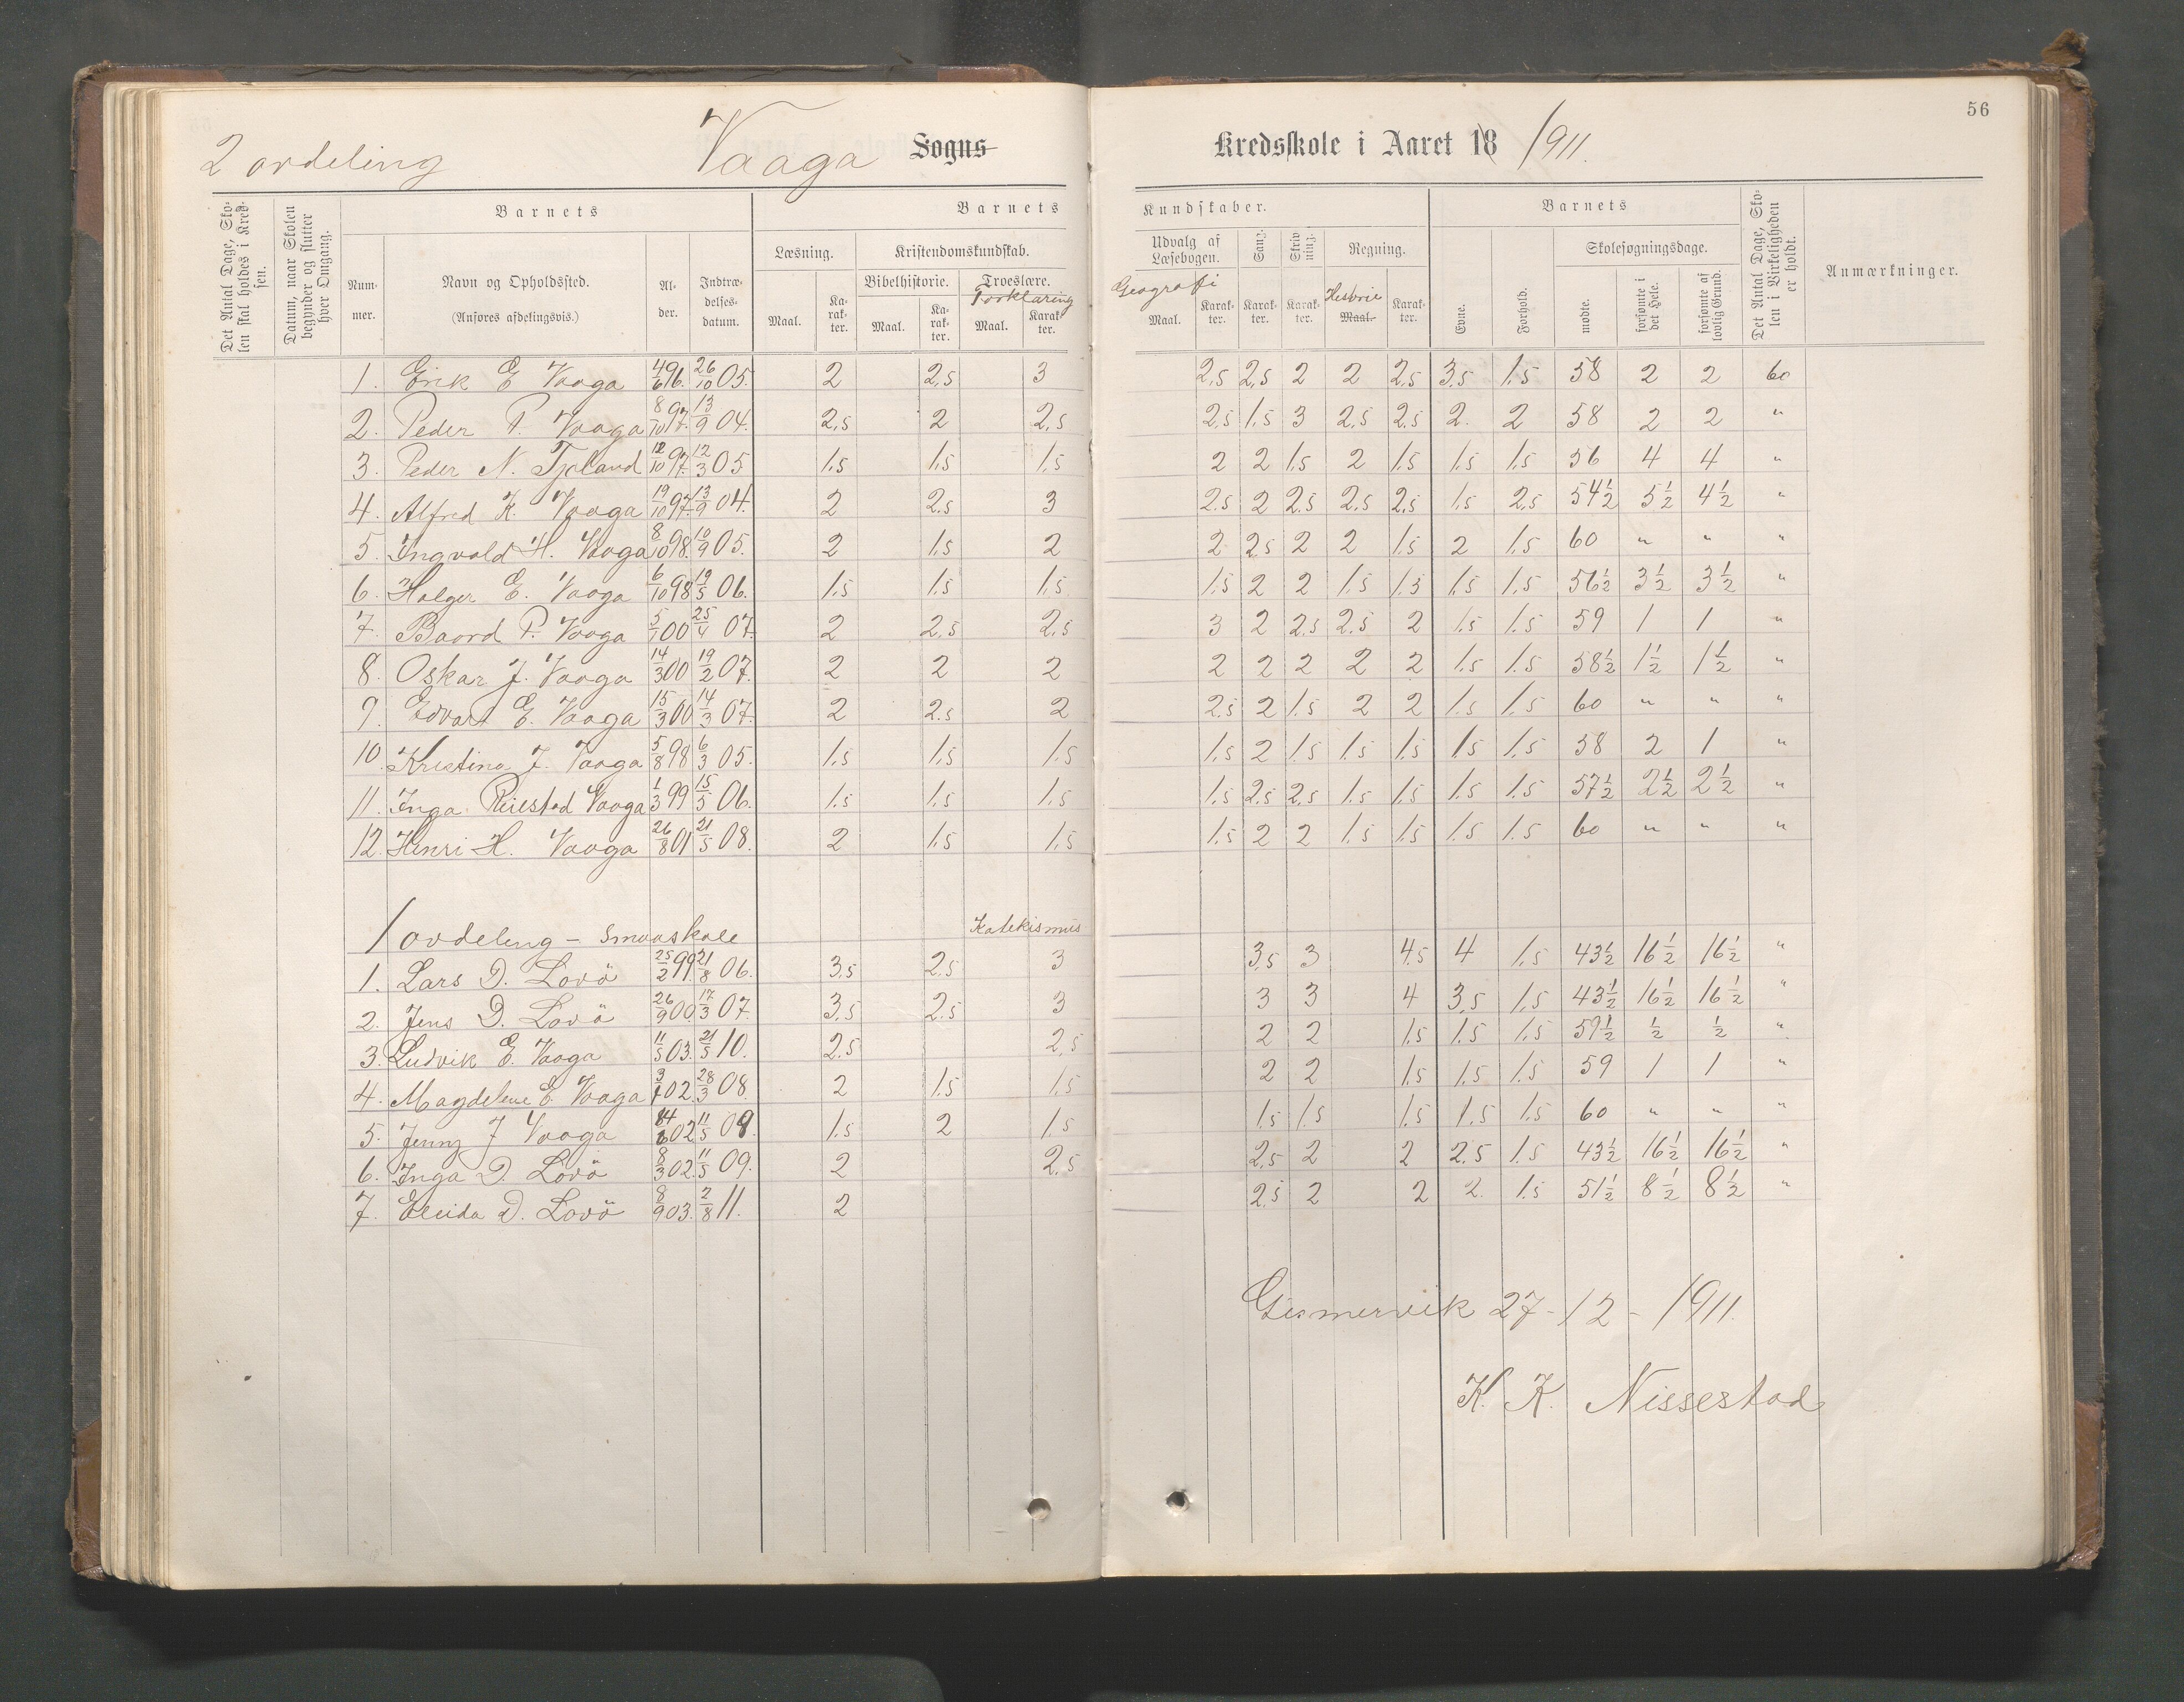 56
2 avdeling Vaaga Sogns Kredsskole i Aaret 18 1911.
Det Antal Dage, Skolen skal holdes i Kredsen.
Datum, naar Skolen begynder og slutter hver Omgang.
Barnets
Nummer.
Navn og Opholdssted.
(Anføres afdelingsvis.)
Alder.
Indtrædelsesdatum.
Barnets Kundskaber.
Læsning.
Maal. Karakter.
Kristendomskundskab.
Bibelhistorie. Troeslære.
Forklaring
Maal. Karakter. Maal. Karakter.
Udvalg af Læsebogen.
Geografi
Maal. Karakter.
Sang.
Karakter.
Skrivning.
Karakter.
Regning.
Historie
Maal. Karakter.
Barnets
Evne. Forhold.
Skolesøgningsdage.
mødte. forsømte i det Hele. forsømte af lovlig Grund.
Det Antal Dage, Skolen i Virkeligheden er holdt.
Anmærkninger.
1. Erik E Vaaga 4/6 96. 26/10 05. 2 2,5 3 2,5 2,5 2 2 2,5 3,5 1.5 58 2 2 60
2. Peder P. Vaaga 8/10 97. 13/9 04. 2,5 2 2,5 2,5 1.5 3 2,5 2,5 2. 2 58 2 2 "
3. Peder N. Tjoland 12/10 97. 12/3 05 1.5 1.5 1.5 2 2 1.5 2 1.5 1.5 1.5 56 4 4 "
4. Alfred K. Vaaga 19/10 97. 13/9 04. 2 2.5 3 2.5 2 2.5 2.5 2,5 1.5 2,5 54½ 5½ 4½ "
5. Ingvald H. Vaaga 8/10 98. 10/9 05. 2 1.5 2 2 2,5 2 2 1.5 2 1.5 60 " " "
6. Holger E. Vaaga 6/10 98 19/5 06. 1.5 1.5 1.5 1.5 2 2 1.5 1.5 1.5 1.5 56½ 3½ 3½ "
7. Baard P. Vaaga 5/1 00 25/4 07. 2 2,5 2,5 3 2 2,5 2.5 2 1.5 1.5 59 1 1 "
8. Oskar J. Vaaga 14/3 00 19/2 07. 2 2 2 2 2 2 2 2 1.5 1.5 58½ 1½ 1½ "
9. Edvart E. Vaaga 15/3 00 14/3 07. 2 2.5 2 2.5 2 1.5 2 2 1.5 1.5 60 " " "
10. Kristina J. Vaaga 5/8 98 6/3 05. 1.5 1.5 1.5 1.5 2 1.5 1.5 1.5 1.5 1.5 58 2 1 "
11. Inga Vaaga 1/3 99 15/5 06. 1.5 1.5 1.5 1.5 2.5 2,5 1.5 1.5 1.5 1.5 57½ 2½ 2½ "
12. Henri H. Vaaga 26/8 01 21/5 08. 2 1.5 1.5 1.5 2 2 1.5 1.5 1.5 1.5 60 " " "
1 avdeling - Smaaskole Katekismus
1. Lars D. Lovö 25/2 99. 21/8 06. 3,5 2.5 3 3,5 3 4.5 4 1.5 43½ 16½ 16½ "
2. Jens D. Lovö 26/9 00. 17/3 07. 3,5 2.5 3 3 3 4 3,5 1.5 43½ 16½ 16½ "
3. Ludvik E. Vaaga 11/5 03. 21/5 10. 2.5 2,5 2 2 1.5 1.5 1.5 59½ ½ ½ "
4. Magdelene E. Vaaga 3/1 02. 28/3 08. 2 1.5 1.5 2 2 1.5 1.5 1.5 59 1 1 "
5. Jenny J Vaaga 02. 11/5 09. 1.5 2 1.5 1.5 1.5 1.5 1.5 1.5 60 " " "
6. Inga D. Lovö 8/3 02. 11/5 09. 2 2.5 2,5 2 2 2.5 1.5 43½ 16½ 16½ "
7. D. Lovö 8/9 03. 2/8 11. 2 2,5 2 2 2. 1.5 51½ 8½ 8½ "
Gismervik 27-12-1911.
K. K. Nissestad